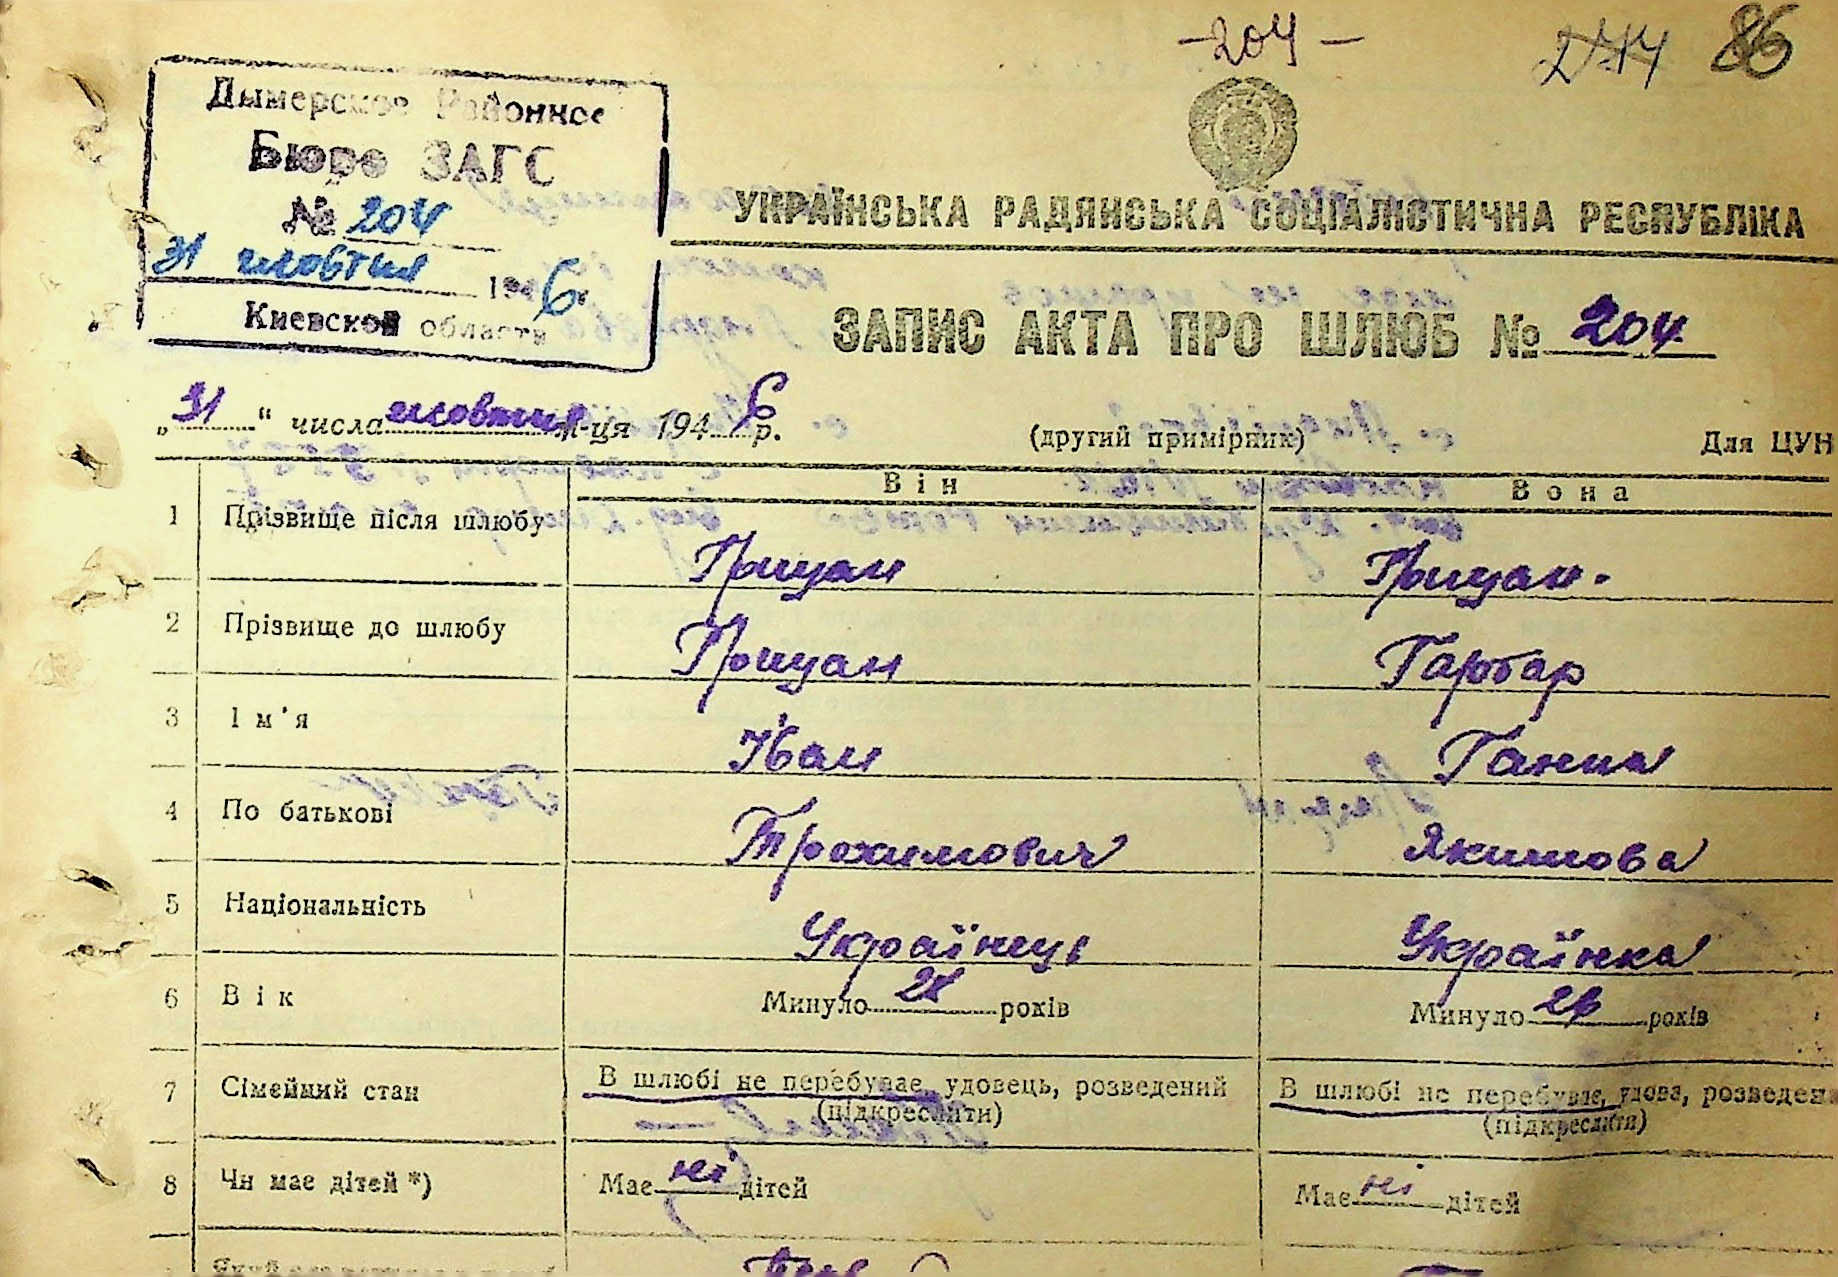 -204-
244 86
Дымерское Районное
Бюро ЗАГС
№ 204
31 жовтня 1946
Киевской области
УКРАЇНСЬКА РАДЯНСЬКА СОЦІАЛІСТИЧНА РЕСПУБЛІКА
ЗАПИС АКТА ПРО ШЛЮБ № 204
„31“ числа жовтня м-ця 1946 р.
(другий примірник) Для ЦУН
Він Вона
1 Прізвище після шлюбу Грицан Грицан.
2 Прізвище до шлюбу Грицан Гарбар
3 Ім'я Іван Ганна
4 По батькові Трохимович Якимова
5 Національність Українець Українка
6 Вік Минуло років Минуло років
7 Сімейний стан В шлюбі не перебуває, удовець, розведений В шлюбі не перебуває, удова, розведена
(підкреслити) (підкреслити)
8 Чи має дітей *) Має ні дітей Має ні дітей